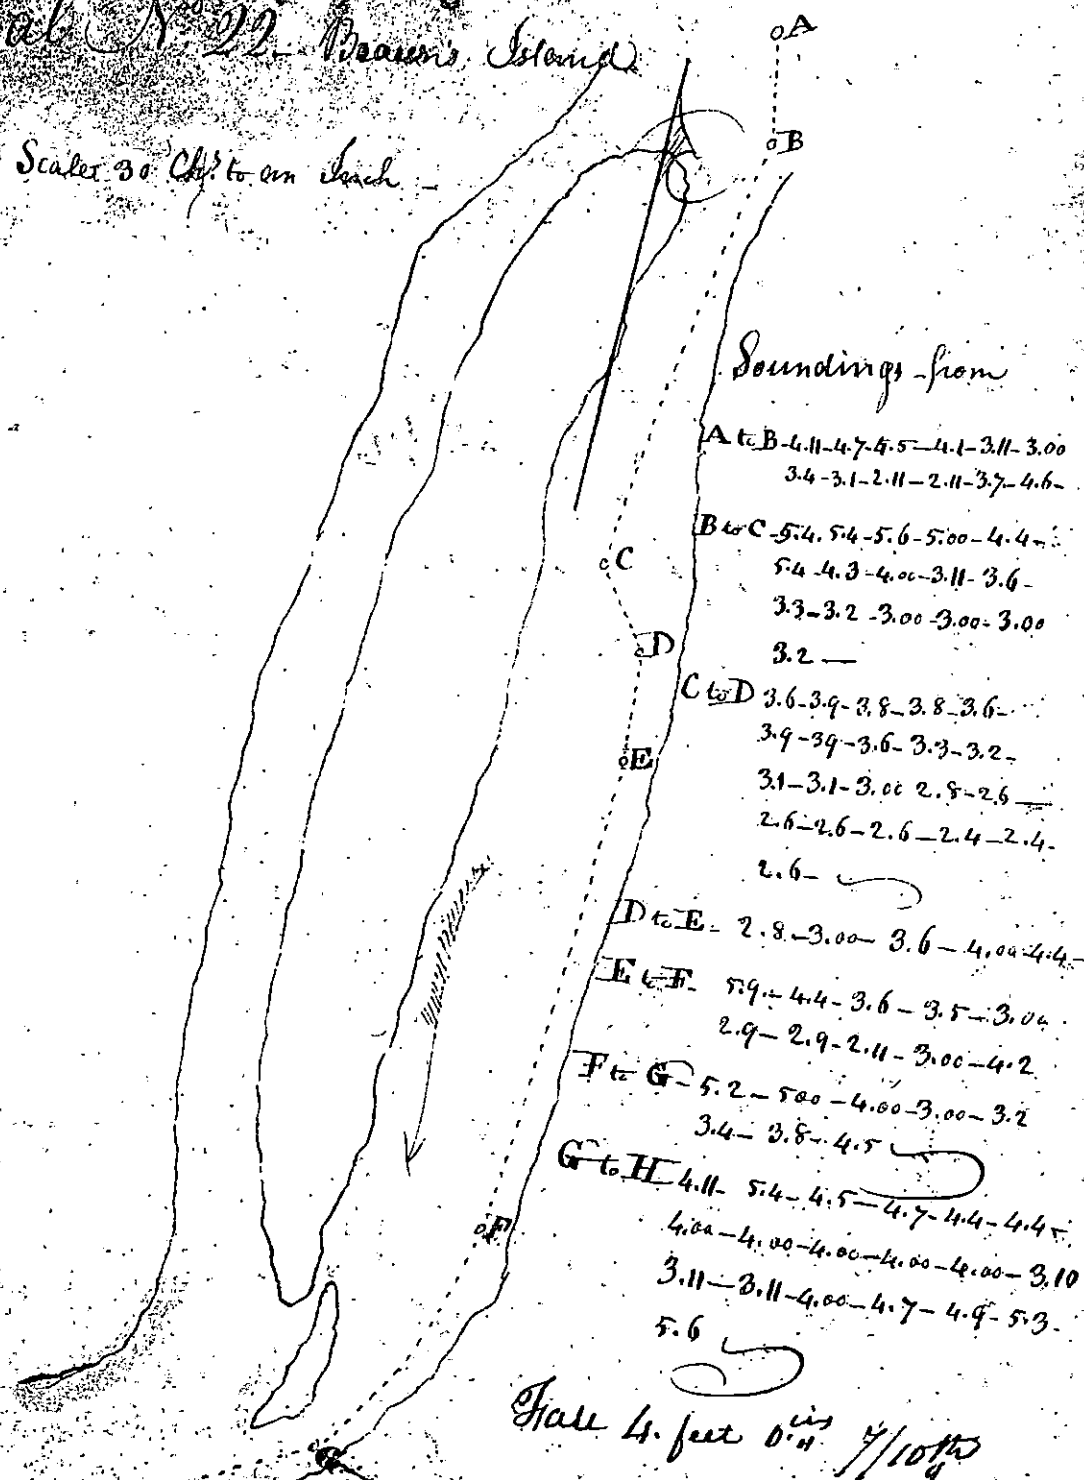 No. 22 Brawn's Island
Scale 30 Chs. to an Inch -
A
B
C
D
E
F
G
Soundings from
A to B-4.11-4.7-4.5-4.1-3.11-3.00
3.4-3.1-2.11-2.11-3.7-4.6-
B to C-5.4.5.4-5.6-5.00-4.4-
5.4-4.3-4.00-3.11-3.6-
3.3-3.2-3.00-3.00-3.00
3.2 —
C to D 3.6-3.9-3.8-3.8-3.6-
3.9-39-3.6-3.3-3.2-
3.1-3.1-3.00 2.8-2.6 —
2.6-2.6-2.6-2.4-2.4-
2.6-
D to E- 2.8-3.00-3.6-4.00-4.4-
E to F- 5.9-4.4-3.6-3.5-3.00
2.9-2.9-2.11-3.00-4.2
F to G-5.2-500-4.00-3.00-3.2
3.4-3.8-4.5
G to H 4.11-5.4-4.5-4.7-4.4-4.4-
4.00-4.00-4.00-4.00-4.00-3.10
3.11-3.11-4.00-4.7-4.9-5.3-
5.6
4. feet 0 ins 7/10th